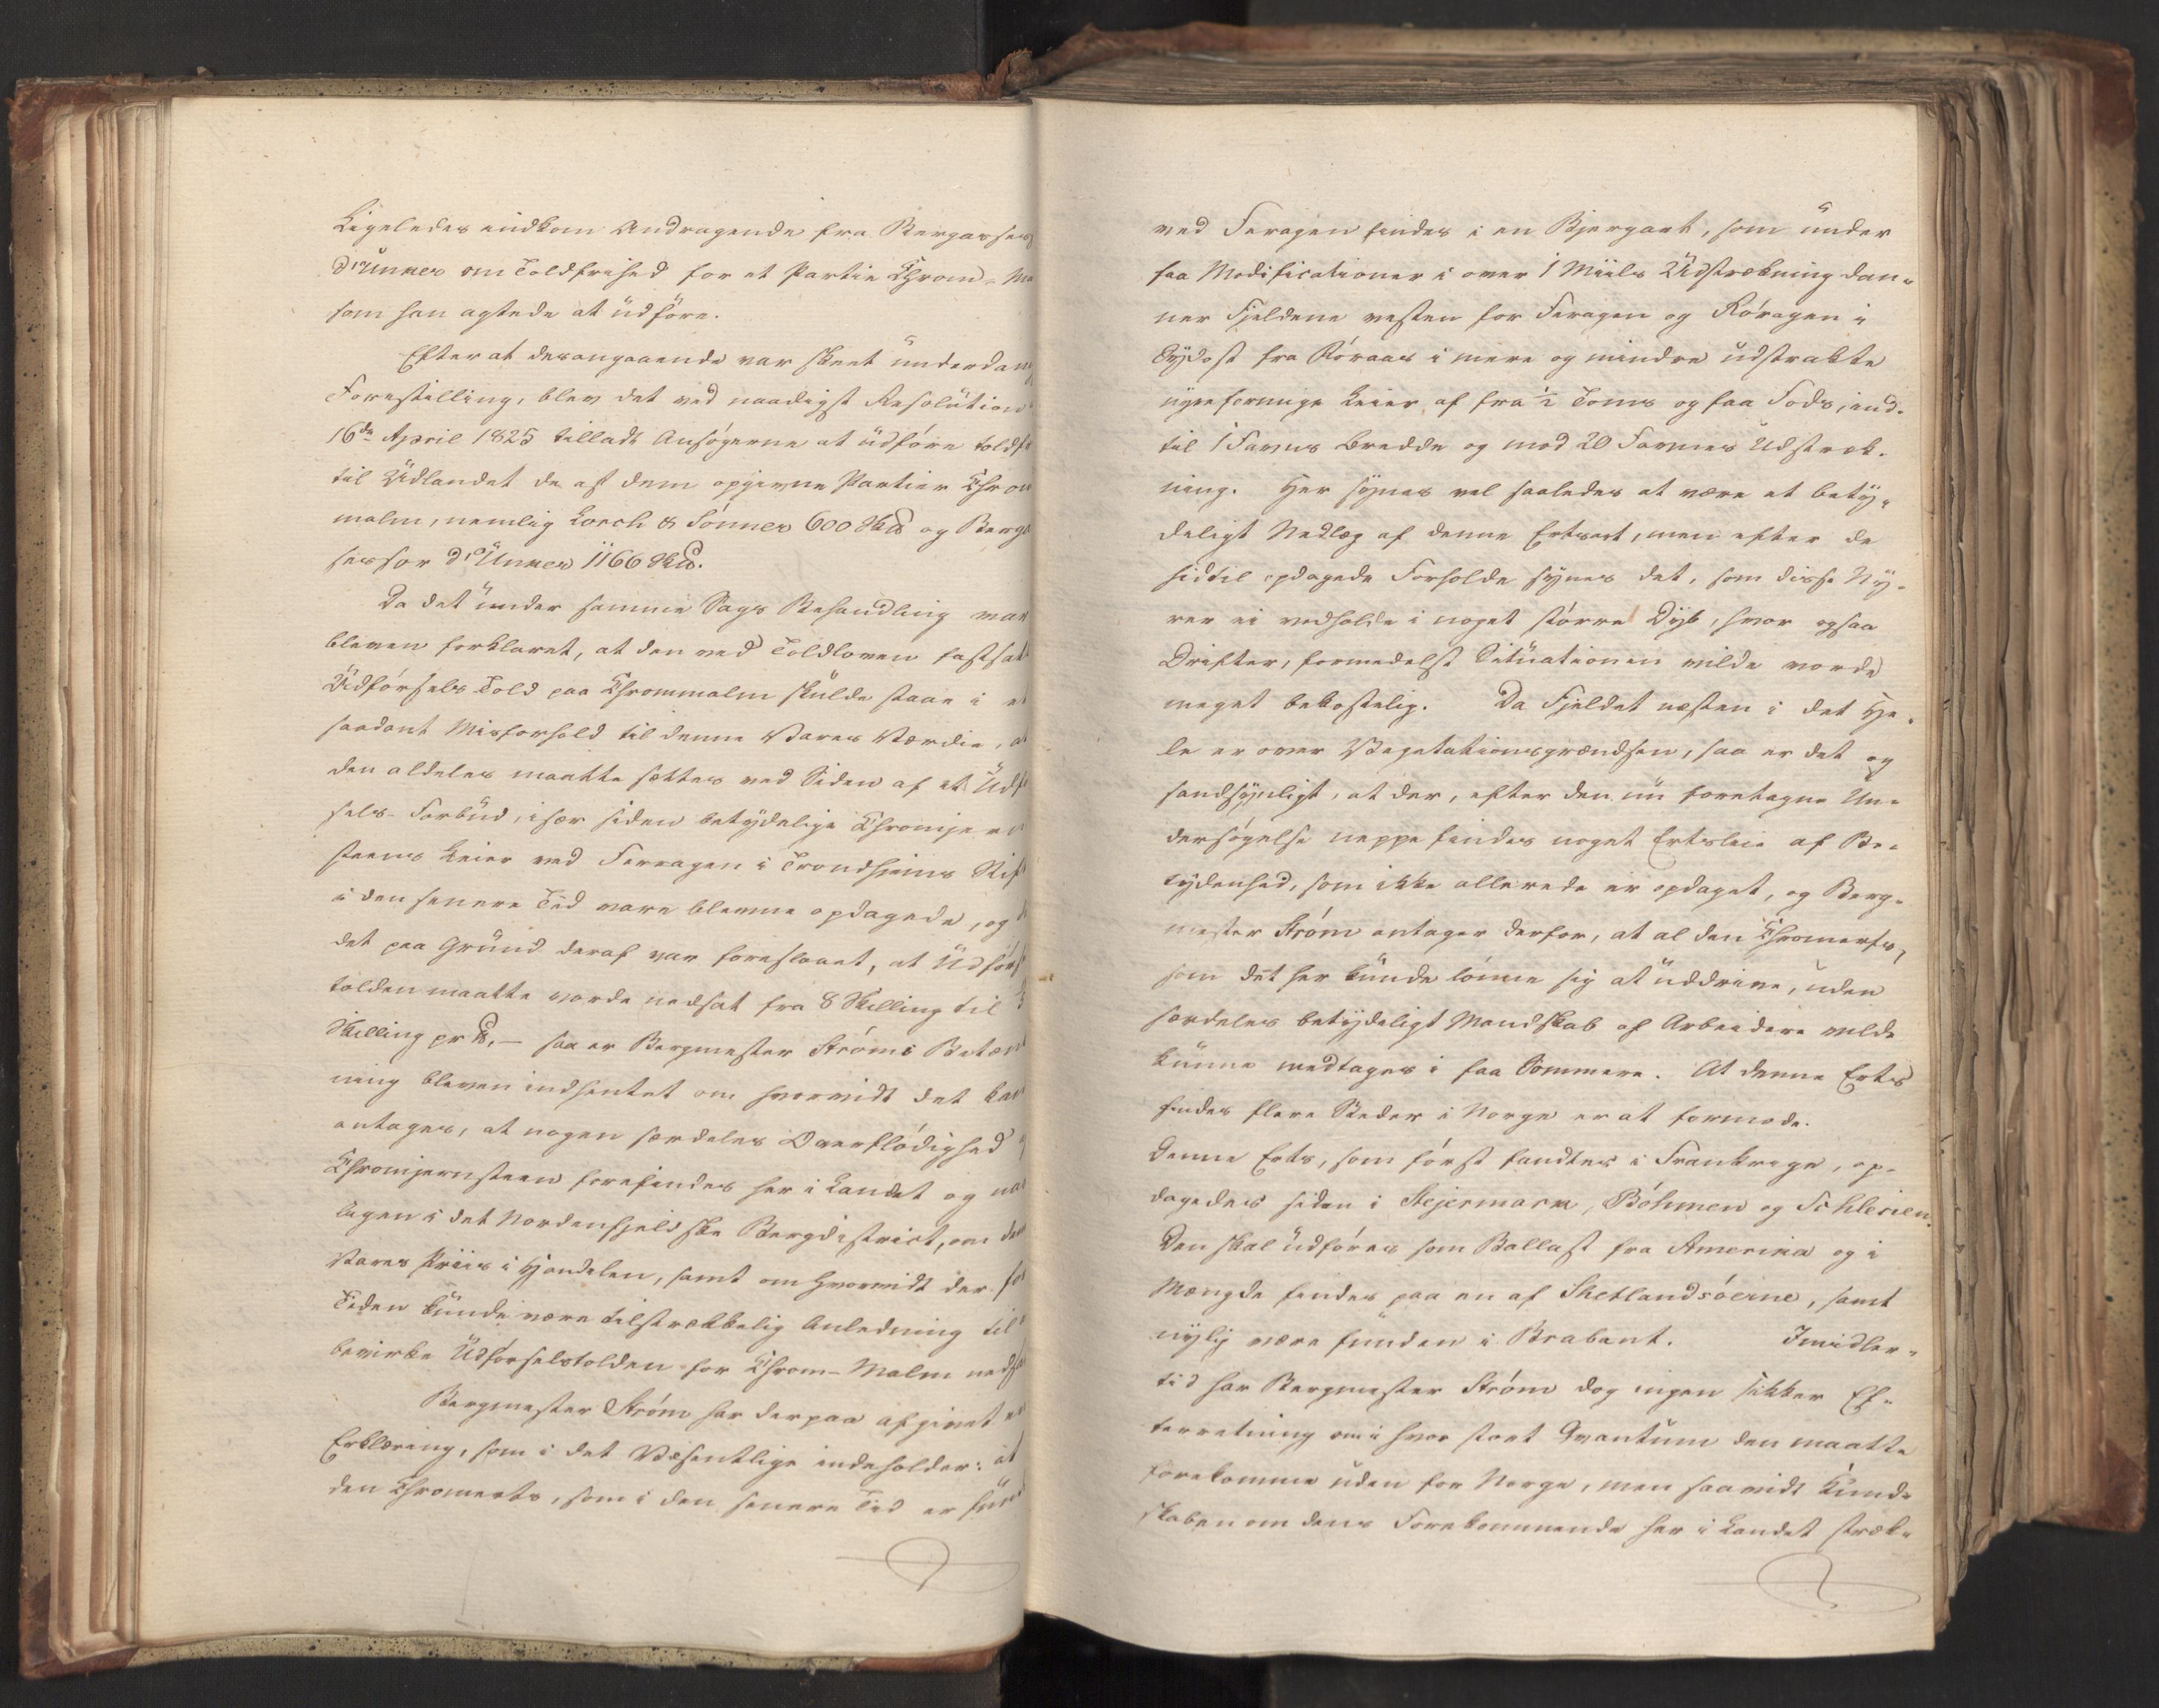 Ligeledes indkom Andragende fra Bergasses
d'Unker om Toldfrihed for et Partie Chrom-Ma
som han agtede at udföre.
Efter at desangaaende var skeet underdan
Forestilling, blev det ved naadigst Resolution
16de April 1825 tilladt Ansögerne at udföre toldf
til Udlandet de af dem opgivne Partier Chrom
malm, nemlig Lorch & Sönner 600 Sk℔ og Berga
sessor d'Unker 1166 Sk℔.
Da det under samme Sags Behandling var
bleven forklaret, at den ved Toldloven fastsat
Udförsels Told paa Chrommalm skulde staae i e
saadant Misforhold til denne Vares Værdie, a
den aldeles maatte sættes ved Siden af et Udf
sels-Forbud, især siden betydelige Chromjern
steens Leier ved Ferragen i Trondhjems Stif
i den senere Tid vare blevne opdagede, og d
det paa Grund deraf var foreslaaet, at Udförs
tolden maatte vorde nedsat fra 8 Skilling til
Skilling pr ℔, – saa er Bergmester Ströms Betæn
ning bleven indhentet om hvorvidt det kan
antages, at nogen særdeles Overflödighed
Chromjernsteen forefindes her i Landet og na
lagen i det Nordenfjeldske Bergdistrict, om den
Vares Priis i Handelen, samt om hvorvidt der for
Tiden kunde være tilstrækkelig Anledning til
bevirke Udförselstolden for Chrom-Malm nedsa
Bergmester Ström har derpaa afgivet en
Erklæring, som i det Væsentlige indeholder: at
den Chromerts, som i den senere Tid er fun
ved Feragen findes i en Bjergart, som under
faa Modificationer i over 1 Miils Udstrækning dan-
ner Fjeldene vesten for Feragen og Röragen i
Sydost fra Röraas i mere og mindre udstrakte
nyreformige Leier, af fra ½ Tomes og faa Fods, ind-
til 1 Favns Bredde og med 20 Favnes Udstræk-
ning. Her synes vel saaledes at være et bety-
deligt Nedlæg af denne Ertsart, men efter de
hidtil opdagede Forholde synes det, som disse Ny-
rer ei vedholde i noget större Dyb, hvor ogsaa
Driften, formedelst Situationen vilde vorde
meget bekostelig. Da Fjeldet næsten i det He-
le er over Vegetationsgrændsen, saa er det og
sandsynligt, at der, efter den nu foretagne Un-
dersögelse neppe findes noget Ertsleie af Be-
tydenhed, som ikke allerede er opdaget, og Berg-
mester Ström antager derfor, at al den Chromerts,
som det her kunde lönne sig at uddrive, uden
særdeles betydeligt Mandskab af Arbeidere vilde
kunne medtages i faa Sommere. At denne Erts
findes flere Steder i Norge er at formode.
Denne Erts, som först fandtes i Frankrige, op-
dagedes siden i Stejermark, Böhmen og Schlesien.
Den skal udföres som Ballast fra Amerika og i
Mængde findes paa en af Shetlandsöerne, samt
nylig være funden i Brabant. Imidler-
tid har Bergmester Ström dog ingen sikker Ef-
terretning om i hvor stort Qvantum den maatte
forekomme uden for Norge, men saavidt Kund-
skaben om dens Forekommende her i Landet stræk-